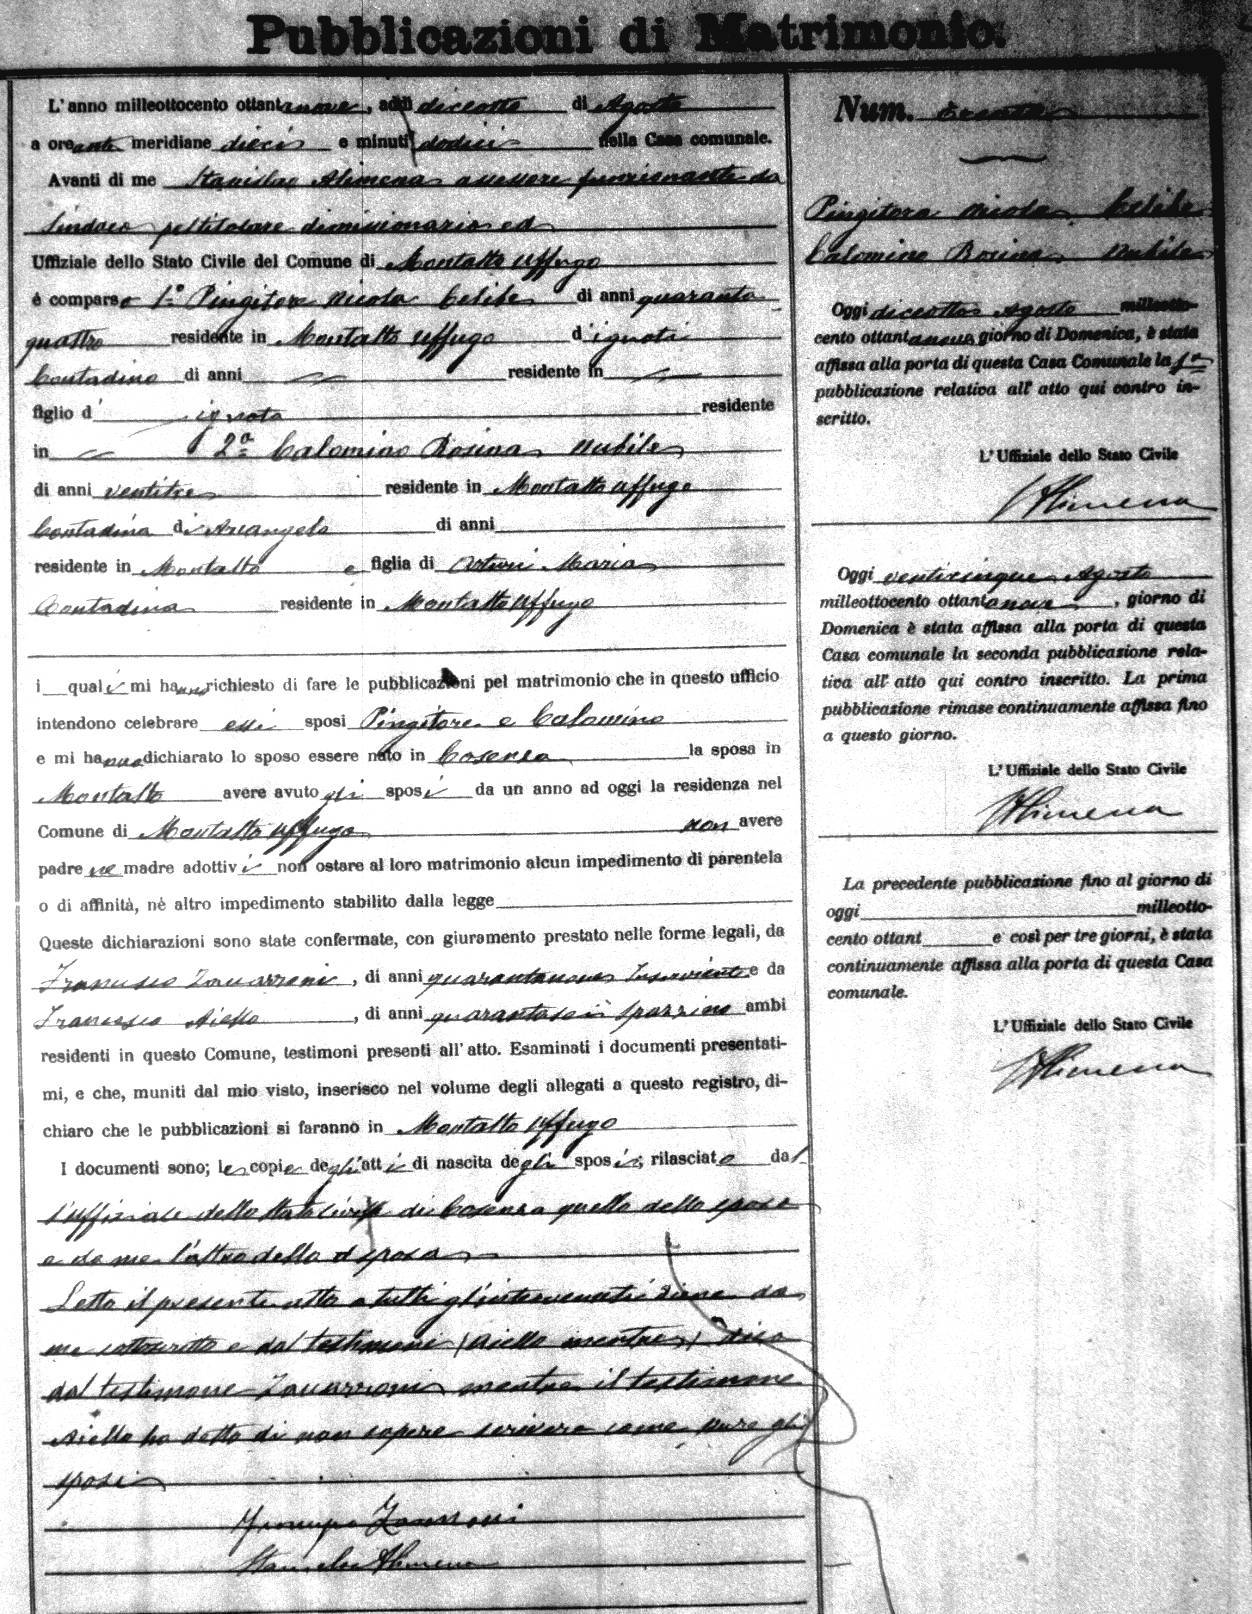 Pubblicazioni di Matrimonio.
L'anno milleottocento ottantanove, addì diciotto di Agosto
a ore anti meridiane dieci e minuti dodici nella Casa comunale.
Avanti di me Stanislao Alimena assessore funzionante da
Sindaco pel titolare dimissionario ed
Uffiziale dello Stato Civile del Comune di Montalto Uffugo
è comparso 1° Pingitore Nicola Celibe di anni quaranta
quattro residente in Montalto Uffugo d'ignoti
Contadino di anni residente in
figlio d' ignota residente
in 2a Calomino Rosina nubile
di anni ventitre residente in Montalto Uffugo
Contadina di Arcangelo di anni
residente in Montalto e figlia di Arturi Maria
Contadina residente in Montalto Uffugo
i quali mi hanno richiesto di fare le pubblicazioni pel matrimonio che in questo ufficio
intendono celebrare essi sposi Pingitore e Calomino
e mi hanno dichiarato lo sposo essere nato in Cosenza la sposa in
Montalto avere avuto gli sposi da un anno ad oggi la residenza nel
Comune di Montalto Uffugo non avere
padre ne madre adottivi non ostare al loro matrimonio alcun impedimento di parentela
o di affinità, nè altro impedimento stabilito dalla legge
Queste dichiarazioni sono state confermate, con giuramento prestato nelle forme legali, da
Francesco Zavarroni, di anni quarantanove Inserviente e da
Francesco Aiello, di anni quarantasei spazzino ambi
residenti in questo Comune, testimoni presenti all'atto. Esaminati i documenti presentati-
mi, e che, muniti dal mio visto, inserisco nel volume degli allegati a questo registro, di-
chiaro che le pubblicazioni si faranno in Montalto Uffugo
I documenti sono; le copie degli atti di nascita degli sposi; rilasciate dal
l'uffiziale dello stato civile di Cosenza quella dello sposo
e da me l'altra della sposa
Letto il presente atto a tutti gl'intervenuti viene da
me sottoscritto e dal testimoni (Aiello mentre) dico
dal testimone Zavarroni mentre il testimone
Aiello ha detto di non sapere scrivere come pure gli
sposi
Zavarroni
Stanislao Alimena
Num. Trenta
Pingitore Nicola Celibe
Calomino Rosina nubile
Oggi diciotto Agosto milleotto-
cento ottantanove giorno di Domenica, è stata
affissa alla porta di questa Casa Comunale la 1a
pubblicazione relativa all'atto qui contro in-
scritto.
L'Uffiziale dello Stato Civile
Alimena
Oggi venticinque Agosto
milleottocento ottantanove, giorno di
Domenica è stata affissa alla porta di questa
Casa comunale la seconda pubblicazione rela-
tiva all'atto qui contro inscritto. La prima
pubblicazione rimase continuamente affissa fino
a questo giorno.
L'Uffiziale dello Stato Civile
Alimena
La precedente pubblicazione fino al giorno di
oggi milleotto-
cento ottant e così per tre giorni, è stata
continuamente affissa alla porta di questa Casa
comunale.
L'Uffiziale dello Stato Civile
Alimena